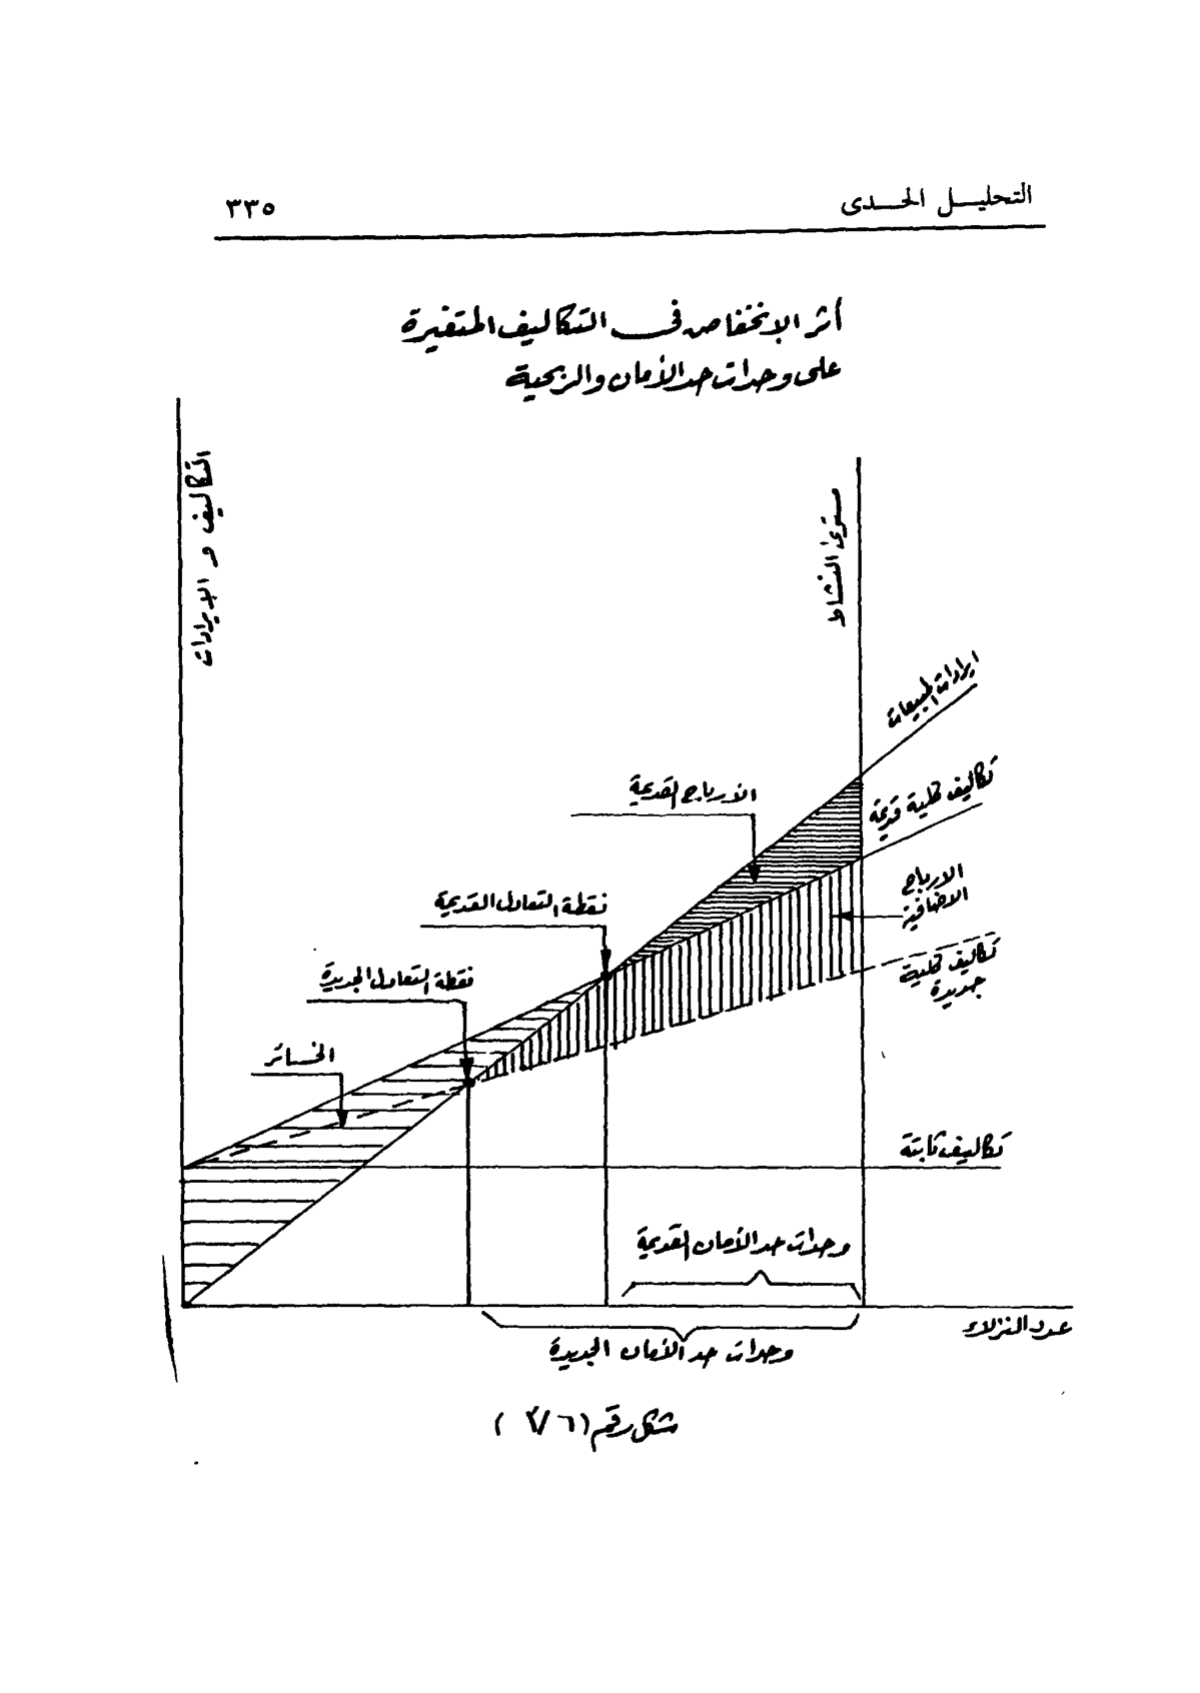 التحليل الحدى
٣٣٥
أثر الإنخفاض فى التكاليف المتغيرة
على وحدات حد الأمان والربحية
التكاليف و الإيرادات
مستوى النشاط
ايرادات المبيعات
تكاليف كلية قديمة
الأرباح القديمة
الارباح
الاضافية
نقطة التعادل القديمة
تكاليف كلية
جديدة
نقطة التعادل الجديدة
الخسائر
تكاليف ثابتة
وحدات حد الأمان القديمة
عدد النزلاء
وحدات حد الأمان الجديدة
شكل رقم (٣/٦)